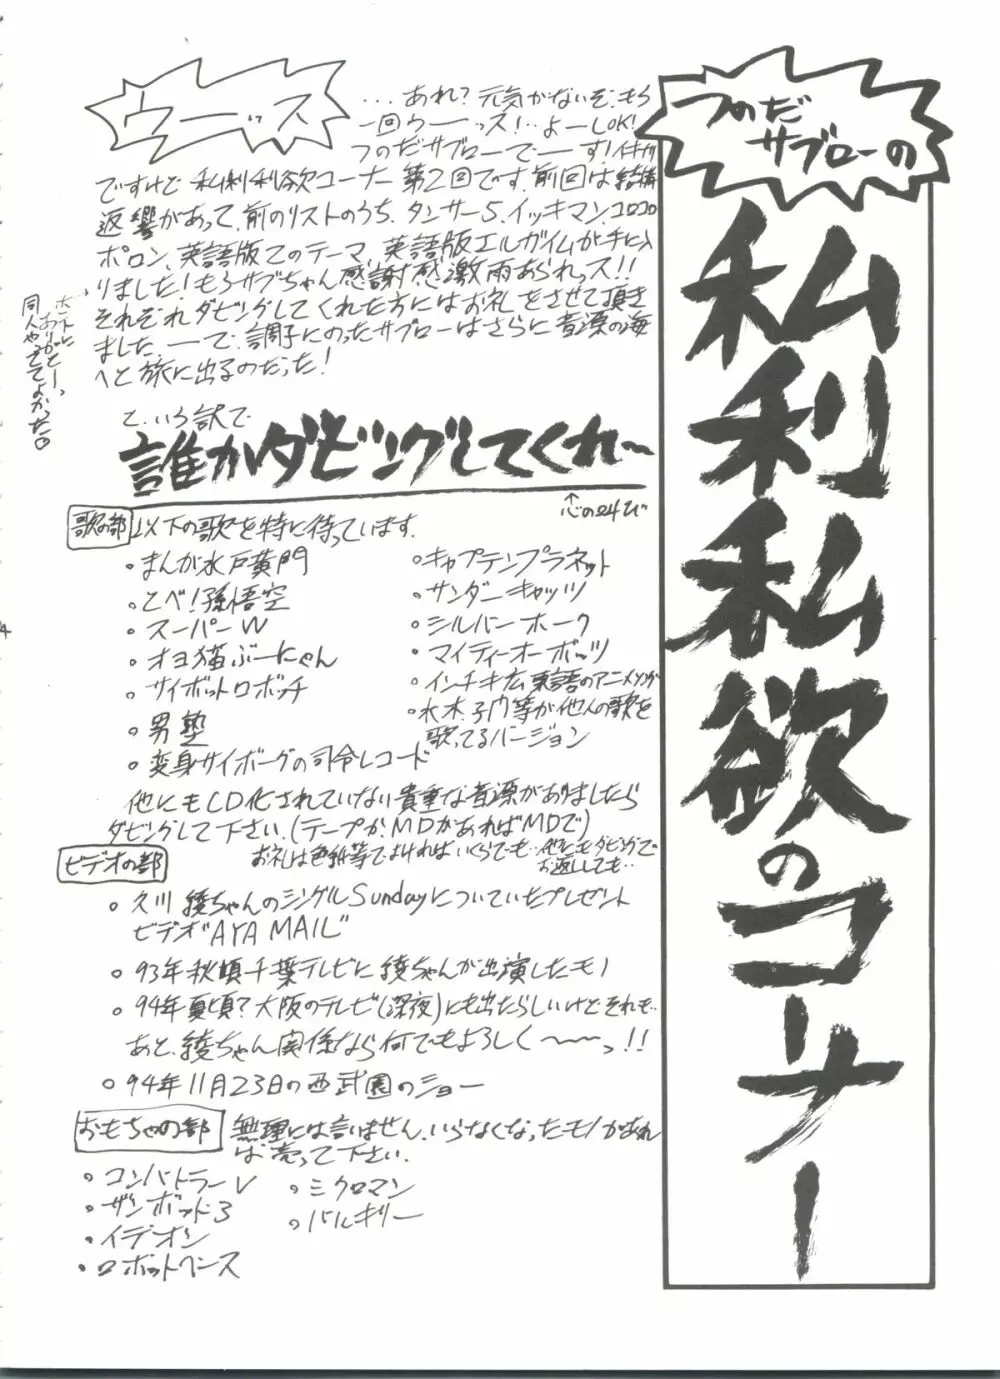 つのだ
サブローの
私利私欲のコーナー
ウーッス
・・・あれ?元気がないぞ、もう
一回ウーーッス!・・よーしOK!
つのだサブローでーーす!イキナリ
ですけど私利私欲コーナー第2回です。前回は結構
返響があって、前のリストのうち、タンサー5、イッキマン、コロコロ
ポロン、英語版Zのテーマ、英語版エルガイムが手に入
りました!もうサブちゃん感謝感激雨あられっス!!
それぞれダビングしてくれた方にはお礼をさせて頂き
ました、ーーで、調子にのったサブローはさらに音源の海
へと旅に出るのだった!
ホントに
ありがとーっ
同人やっててよかった。
と、いう訳で
誰かダビングしてくれ〜
↑心の叫び
歌の部
以下の歌を特に待っています。
・まんが水戸黄門
・とべ!孫悟空
・スーパーW
・オヨ猫ぶーにゃん
・サイボットロボッチ
・男塾
・変身サイボーグの司令レコード
・キャプテンプラネット
・サンダーキャッツ
・シルバーホーク
・マイティーオーボッツ
・インチキ広東語のアニメソング
・水木、子門等が他人の歌を
歌ってるバージョン
他にもCD化されていない貴重な音源がありましたら
ダビングして下さい。(テープか、MDがあればMDで)
お礼は色紙等でよければいくらでも・・他にもダビングで
お返ししても・・
ビデオの部
・久川綾ちゃんのシングルSundayについていたプレゼント
ビデオ"AYA MAIL"
・93年秋頃千葉テレビに綾ちゃんが出演したモノ
・94年夏頃?大阪のテレビ(深夜)にも出たらしいけどそれも・・
あと、綾ちゃん関係なら何でもよろしく〜〜〜っ!!
・94年11月23日の西武園のショー
おもちゃの部
無理には言いません、いらなくなったモノがあれ
ば売って下さい。
・コンバトラーV
・ザンボット3
・イデオン
・ロボットベース
・ミクロマン
・バルキリー